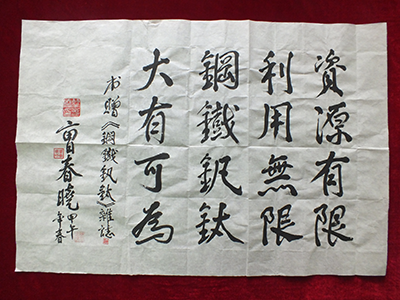 資源有限
利用無限
鋼鐵釩鈦
大有可為
書贈《鋼鐵釩鈦》雜誌
春曉 甲午年春